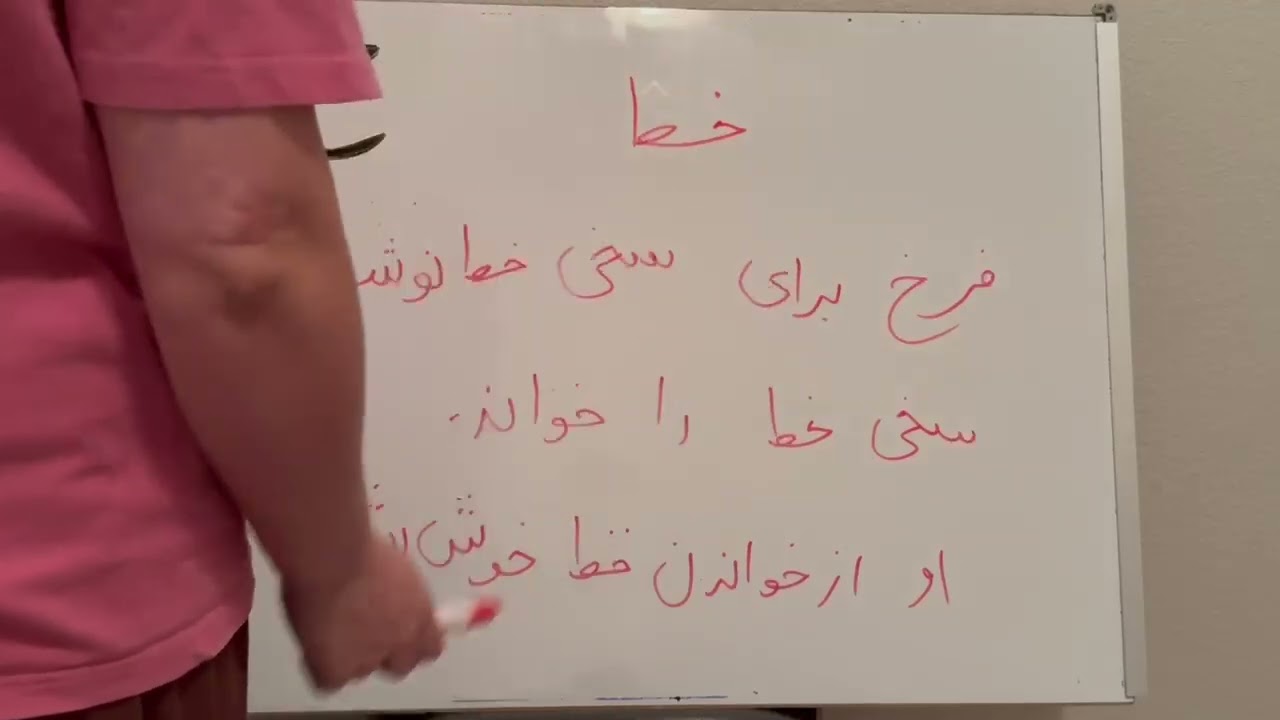 خط
فرخ برای سخی خط نوش
سخی خط را خواند.
او از خواندن خط خوش